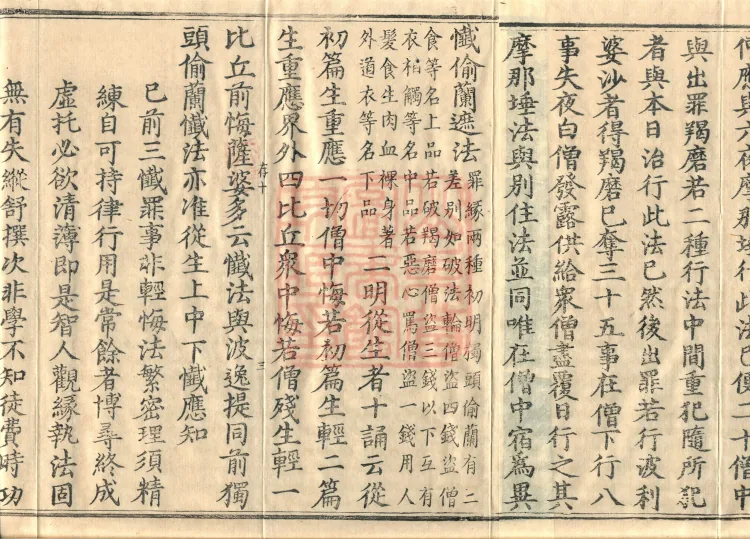 何應與六夜摩那埵行此法已便二十僧中
與出罪羯磨若二種行法中間重犯隨所犯
者與本日治行此法已然後出罪若行波利
婆沙者得羯磨已奪三十五事在僧下行八
事失夜白僧發露供給衆僧盡覆日行之其
摩那埵法與別住法並同唯在僧中宿爲異
懺偷蘭遮法
罪緣兩種初明獨頭偷蘭有三
差別如破法輪僧盜四錢盜僧
食等名上品若破羯磨僧盜三錢以下互有
衣相觸等名中品若惡心罵僧盜一錢用人
髮食生肉血裸身著
外道衣等名下品
二明從生者十誦云從
初篇生重應一切僧中悔若初篇生輕二篇
生重應界外四比丘衆中悔若僧殘生輕一
比丘前悔薩婆多云懺法與波逸提同前獨
存十
三
頭偷蘭懺法亦准從生上中下懺應知
已前三懺罪事非輕悔法繁密理須精
練自可持律行用是常餘者博尋終成
虛托必欲清薄即是智人觀緣執法固
無有失縱舒撰次非學不知徒費時功